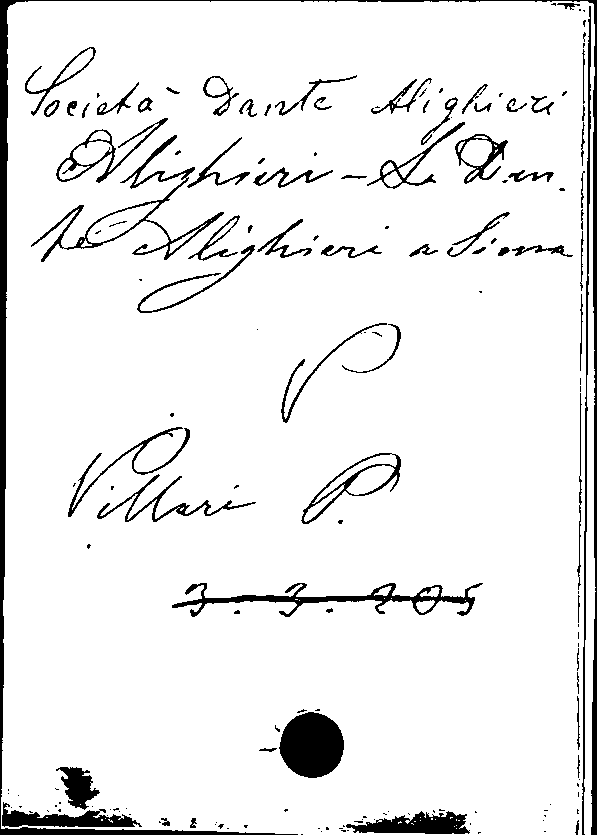 Società Dante Alighieri
Alighieri - La Dan.
te Alighieri a Siena
V
Villari P.
3.3.205